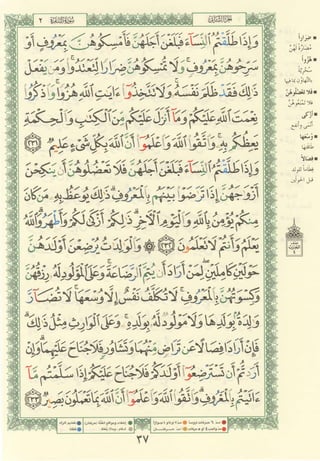 الجزء الثاني
سورة البقرة ٢
وَإِذَا طَلَّقْتُمُ ٱلنِّسَآءَ فَبَلَغْنَ أَجَلَهُنَّ فَأَمْسِكُوهُنَّ بِمَعْرُوفٍ أَوْ
سَرِّحُوهُنَّ بِمَعْرُوفٍ ۚ وَلَا تُمْسِكُوهُنَّ ضِرَارًا لِّتَعْتَدُوا۟ ۚ وَمَن يَفْعَلْ
ذَٰلِكَ فَقَدْ ظَلَمَ نَفْسَهُۥ ۚ وَلَا تَتَّخِذُوٓا۟ ءَايَٰتِ ٱللَّهِ هُزُوًا ۚ وَٱذْكُرُوا۟
نِعْمَتَ ٱللَّهِ عَلَيْكُمْ وَمَآ أَنزَلَ عَلَيْكُم مِّنَ ٱلْكِتَٰبِ وَٱلْحِكْمَةِ
يَعِظُكُم بِهِۦ ۚ وَٱتَّقُوا۟ ٱللَّهَ وَٱعْلَمُوٓا۟ أَنَّ ٱللَّهَ بِكُلِّ شَىْءٍ عَلِيمٌ ٢٣١
وَإِذَا طَلَّقْتُمُ ٱلنِّسَآءَ فَبَلَغْنَ أَجَلَهُنَّ فَلَا تَعْضُلُوهُنَّ أَن يَنكِحْنَ
أَزْوَٰجَهُنَّ إِذَا تَرَٰضَوْا۟ بَيْنَهُم بِٱلْمَعْرُوفِ ۗ ذَٰلِكَ يُوعَظُ بِهِۦ مَن كَانَ
مِنكُمْ يُؤْمِنُ بِٱللَّهِ وَٱلْيَوْمِ ٱلْءَاخِرِ ۗ ذَٰلِكُمْ أَزْكَىٰ لَكُمْ وَأَطْهَرُ ۗ وَٱللَّهُ
يَعْلَمُ وَأَنتُمْ لَا تَعْلَمُونَ ٢٣٢ ۞ وَٱلْوَٰلِدَٰتُ يُرْضِعْنَ أَوْلَٰدَهُنَّ
حَوْلَيْنِ كَامِلَيْنِ ۖ لِمَنْ أَرَادَ أَن يُتِمَّ ٱلرَّضَاعَةَ ۚ وَعَلَى ٱلْمَوْلُودِ لَهُۥ رِزْقُهُنَّ
وَكِسْوَتُهُنَّ بِٱلْمَعْرُوفِ ۚ لَا تُكَلَّفُ نَفْسٌ إِلَّا وُسْعَهَا ۚ لَا تُضَآرَّ
وَٰلِدَةٌۢ بِوَلَدِهَا وَلَا مَوْلُودٌ لَّهُۥ بِوَلَدِهِۦ ۚ وَعَلَى ٱلْوَارِثِ مِثْلُ ذَٰلِكَ ۗ
فَإِنْ أَرَادَا فِصَالًا عَن تَرَاضٍ مِّنْهُمَا وَتَشَاوُرٍ فَلَا جُنَاحَ عَلَيْهِمَا ۗ وَإِنْ
أَرَدتُّمْ أَن تَسْتَرْضِعُوٓا۟ أَوْلَٰدَكُمْ فَلَا جُنَاحَ عَلَيْكُمْ إِذَا سَلَّمْتُم مَّآ
ءَاتَيْتُم بِٱلْمَعْرُوفِ ۗ وَٱتَّقُوا۟ ٱللَّهَ وَٱعْلَمُوٓا۟ أَنَّ ٱللَّهَ بِمَا تَعْمَلُونَ بَصِيرٌ ٢٣٣
٣٧